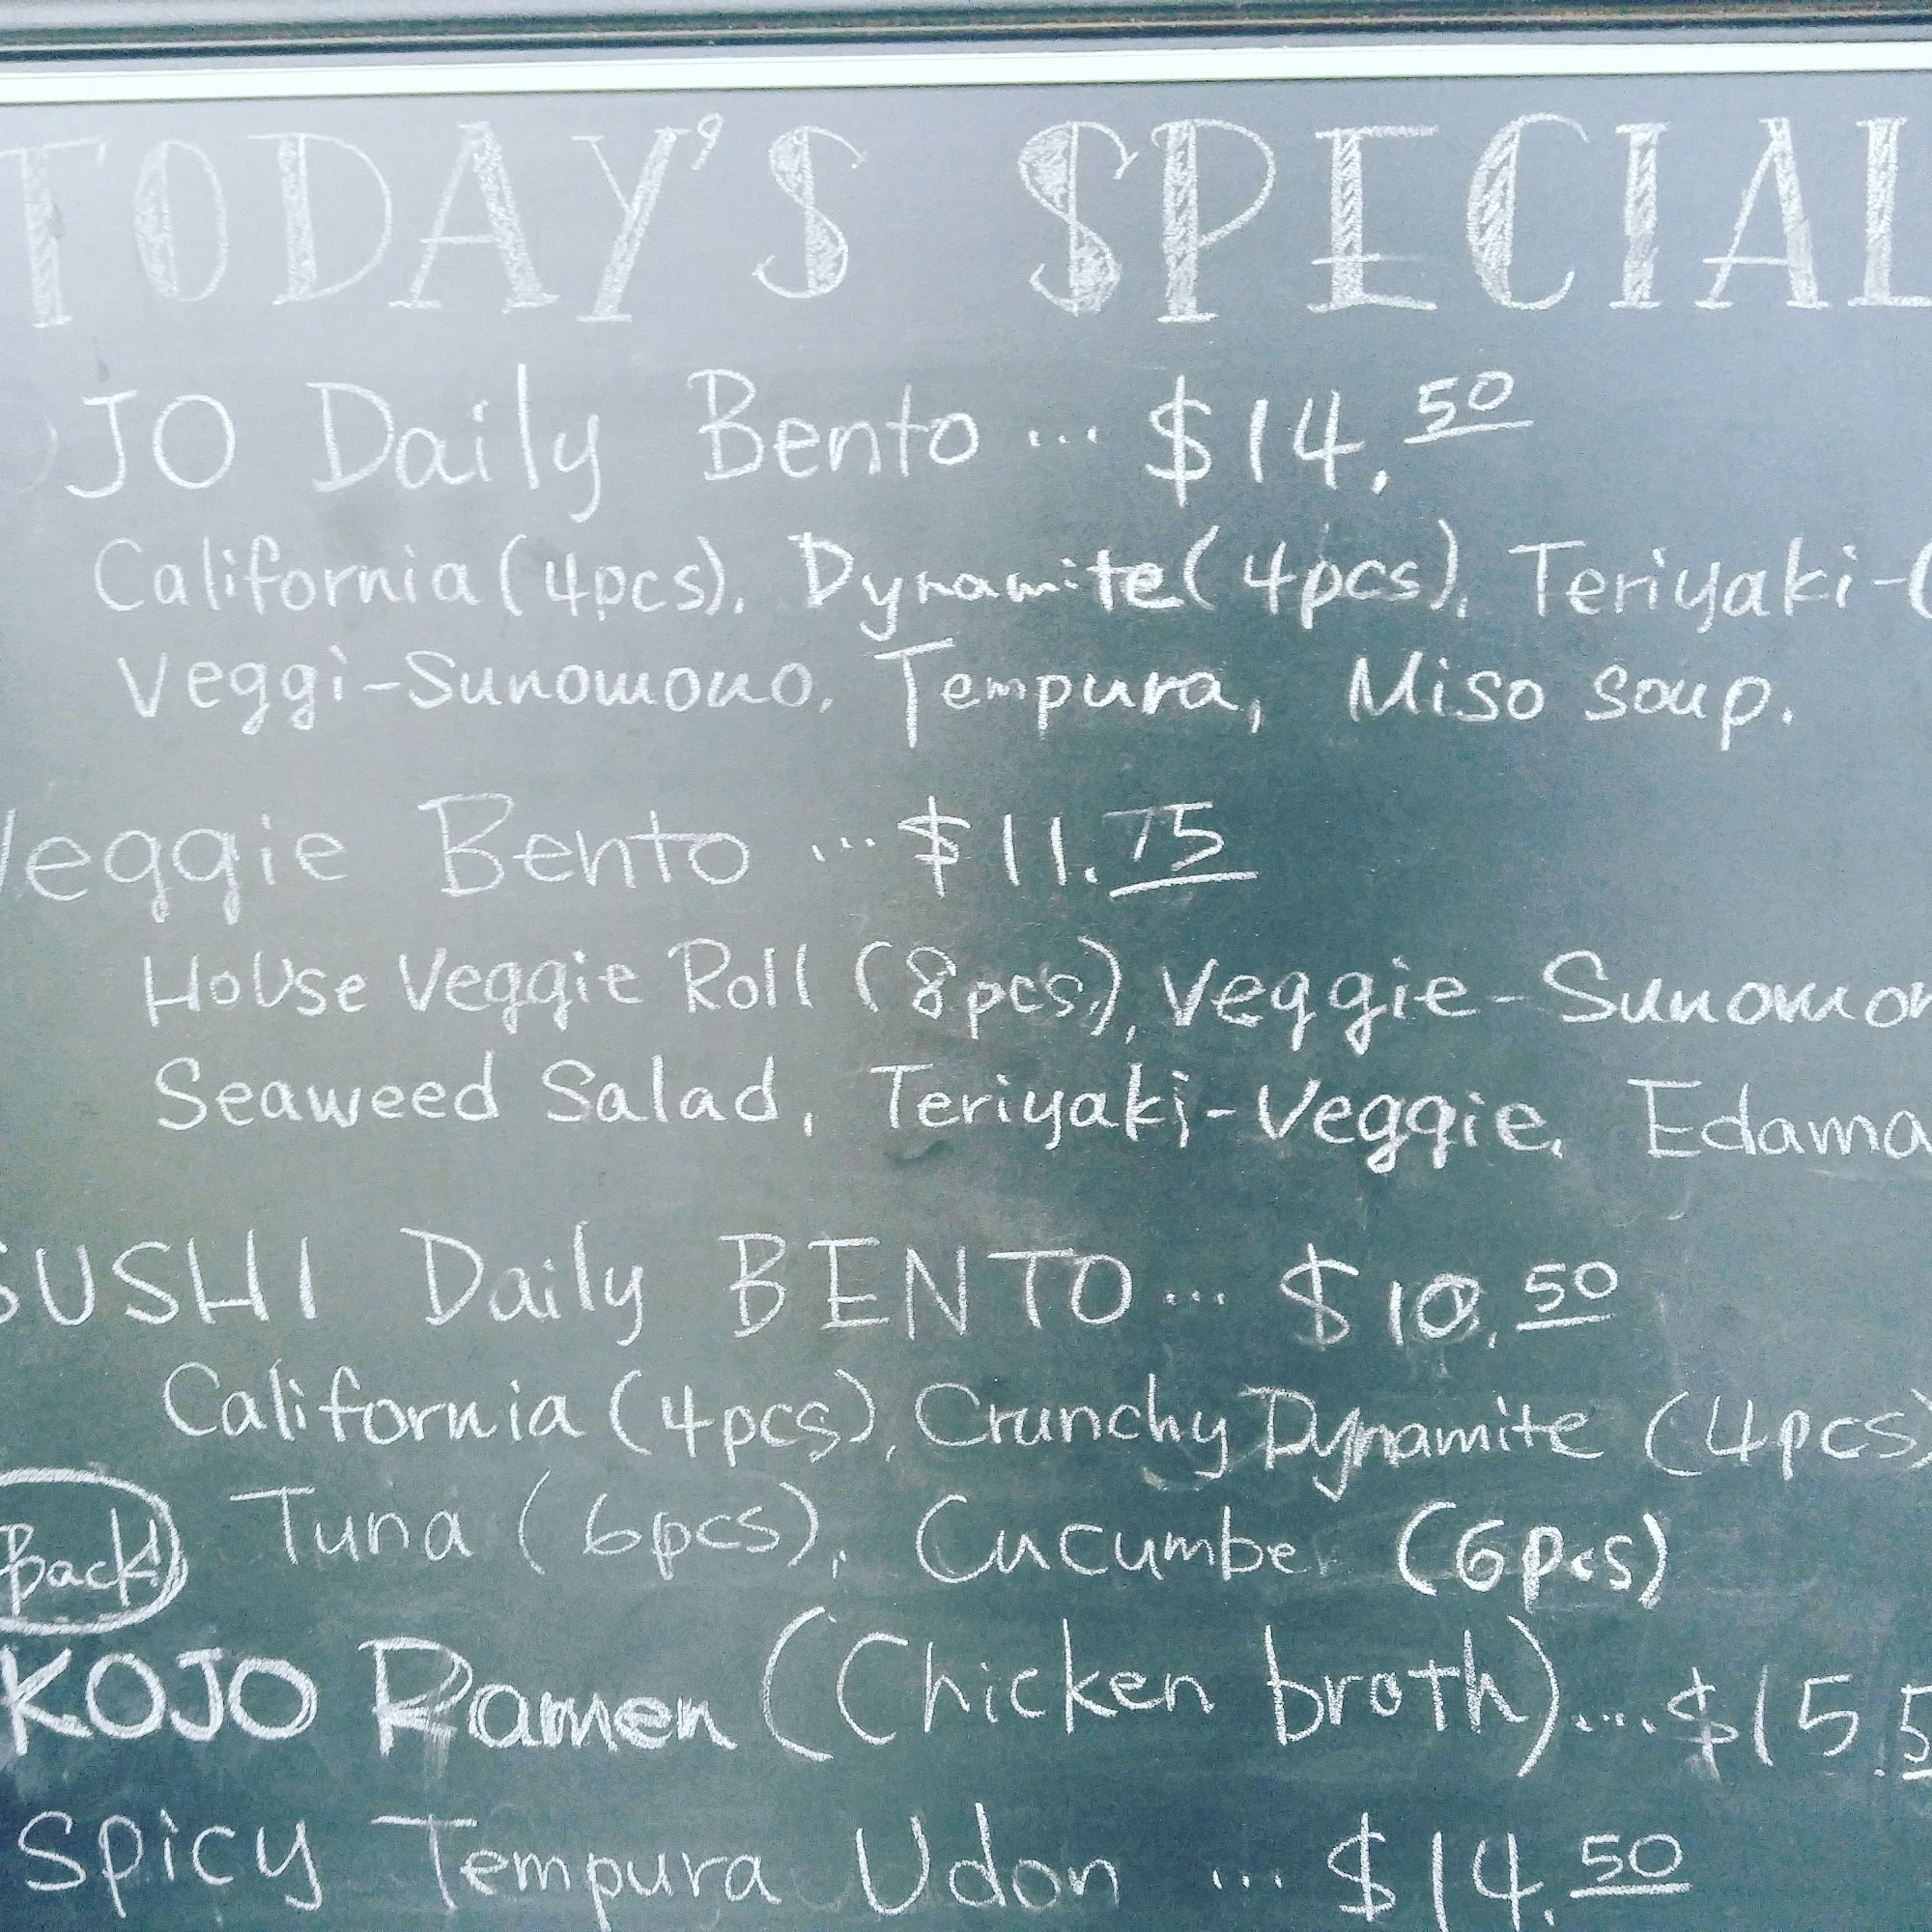 TODAY'S SPECIAL
OJO Daily Bento ... $14.50
California (4pcs), Dynamite (4pcs), Teriyaki-
Veggi-Sunomono, Tempura, Miso soup.
Veggie Bento ... $11.75
House Veggie Roll (8pcs), Veggie-Sunomon
Seaweed Salad, Teriyaki-Veggie, Edama
SUSHI Daily BENTO ... $10.50
California (4pcs), Crunchy Dynamite (4pcs)
Back! Tuna (6pcs), Cucumber (6pcs)
KOJO Ramen (Chicken broth) ... $15.5
Spicy Tempura Udon ... $14.50